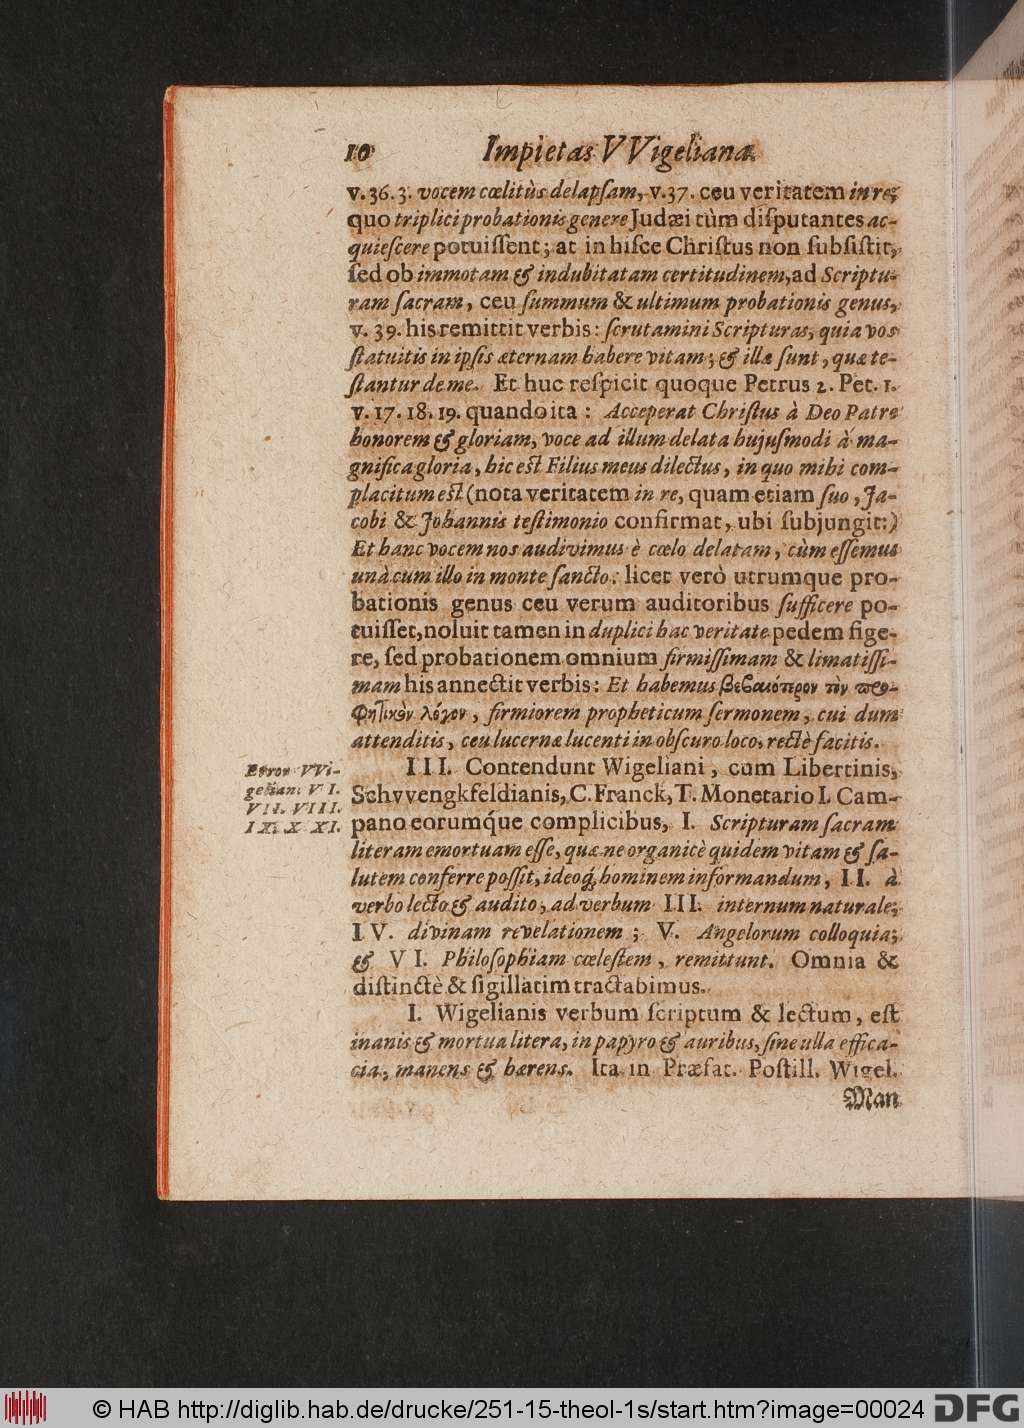 10 Impietas VVigeliana
v. 36. 3. vocem cœlitùs delapſam, v. 37. ceu veritatem in re;
quo triplici probationis genere Judæi tùm diſputantes ac-
quieſcere potuiſſent; at in hiſce Chriſtus non ſubſiſtit,
ſed ob immotam & indubitatam certitudinem, ad Scriptu-
ram ſacram, ceu ſummum & ultimum probationis genus,
v. 39. his remittit verbis: ſcrutamini Scripturas, quia vos
ſtatuitis in ipſis æternam habere vitam; & illæ ſunt, quæ te-
ſtantur de me. Et huc reſpicit quoque Petrus 2. Pet. 1.
v. 17. 18. 19. quando ita: Acceperat Chriſtus à Deo Patre
honorem & gloriam, voce ad illum delata hujuſmodi à ma-
gnifica gloria, hic eſt Filius meus dilectus, in quo mihi com-
placitum eſt (nota veritatem in re, quam etiam ſuo, Ja-
cobi & Johannis teſtimonio confirmat, ubi ſubjungit:)
Et hanc vocem nos audivimus è cœlo delatam, cùm eſſemus
unà cum illo in monte ſancto: licet verò utrumque pro-
bationis genus ceu verum auditoribus ſufficere po-
tuiſſet, noluit tamen in duplici hac veritate pedem fige-
re, ſed probationem omnium firmiſſimam & limatiſſi-
mam his annectit verbis: Et habemus βεβαιότερον τὸν προ-
φητικὸν λόγον, firmiorem propheticum ſermonem, cui dum
attenditis, ceu lucernæ lucenti in obſcuro loco, rectè facitis.
Error VVi-
gelian: VI.
VII. VIII.
IX. X. XI.
III. Contendunt Wigeliani, cum Libertinis,
Schvvengkfeldianis, C. Franck, T. Monetario I. Cam-
pano eorumq́ue complicibus, I. Scripturam ſacram
literam emortuam eſſe, quæ ne organicè quidem vitam & ſa-
lutem conferre poſſit, ideoq́; hominem informandum, II. à
verbo lecto & audito, ad verbum III. internum naturale;
IV. divinam revelationem; V. Angelorum colloquia;
& VI. Philoſophiam cœleſtem, remittunt. Omnia &
diſtinctè & ſigillatim tractabimus.
I. Wigelianis verbum ſcriptum & lectum, eſt
inanis & mortua litera, in papyro & auribus, ſine ulla effica-
cia, manens & hærens. Ita in Præfat. Poſtill. Wigel.
Man
© HAB http://diglib.hab.de/drucke/251-15-theol-1s/start.htm?image=00024
DFG